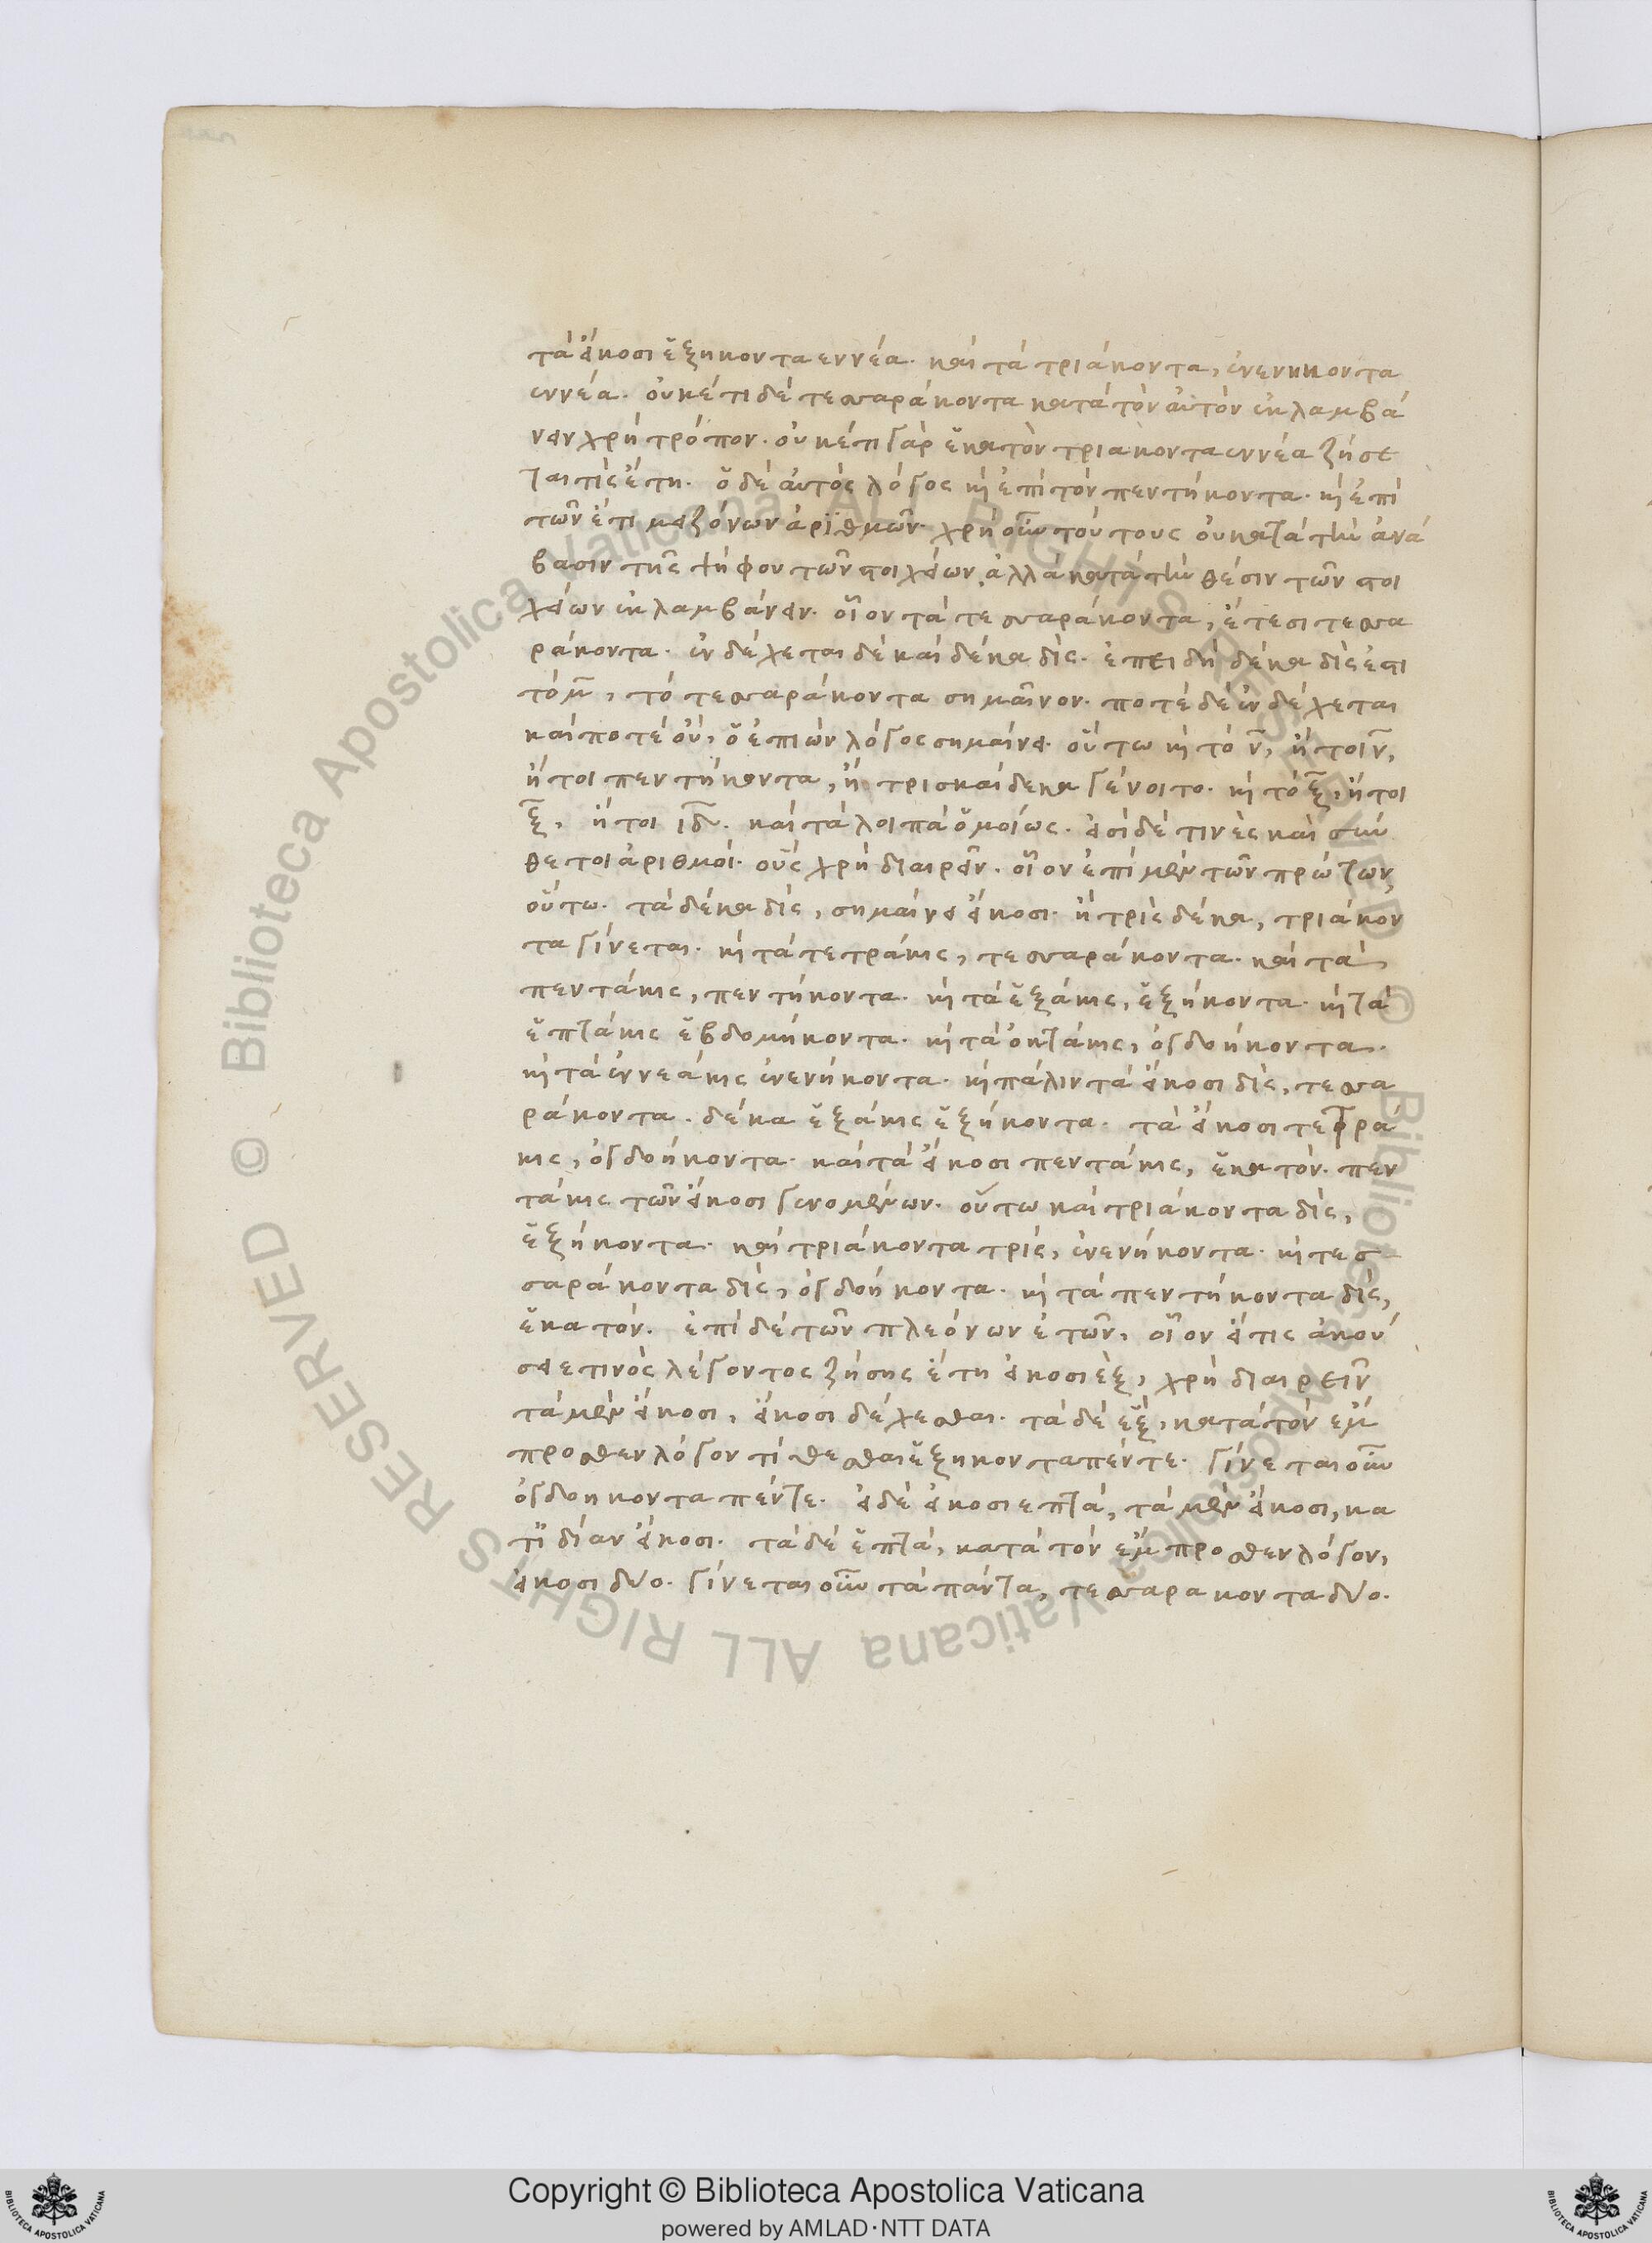 τὰ εἴκοσι ἑξηκονταεννέα. καὶ τὰ τριάκοντα, ἐνενηκοντα
εννέα. οὐκέτι δὲ τεσσαράκοντα κατὰ τὸν αὐτὸν ἐκλαμβά
νειν χρὴ τρόπον. οὐκέτι γὰρ ἑκατὸν τριακονταεννέα ζήσε
ται τὶς ἔτη. ὁ δὲ αὐτὸς λόγος κὶ ἐπὶ τὸν πεντήκοντα. κὶ ἐπὶ
τῶν ἔτι μειζόνων ἀριθμῶν. χρὴ οὖν τούτους οὐ κατὰ τὴν ἀνά
βασιν τῆς ψήφου τῶν στοιχείων, ἀλλὰ κατὰ τὴν θέσιν τῶν στοι
χείων ἐκλαμβάνειν. οἷον τὰ τεσσαράκοντα, ἔτεσι τεσσα
ράκοντα. ἐνδέχεται δὲ καὶ δέκα δὶς. ἐπειδὴ δέκα δὶς ἐστι
τὸ μ̅, τὸ τεσσαράκοντα σημαῖνον. ποτὲ δὲ ἐνδέχεται
καὶ ποτὲ οὐ, ὁ ἐπιὼν λόγος σημαίνει. οὕτω κὶ τὸ ν̅, ἤτοι ν̅,
ἤτοι πεντήκοντα, ἢ τρισκαίδεκα γένοιτο. κὶ τὸ ξ̅, ἤτοι
ξ̅, ἤτοι ιδ̅. καὶ τὰ λοιπὰ ὁμοίως. εἰσὶ δὲ τινὲς καὶ σύν
θετοι ἀριθμοί. οὓς χρὴ διαιρεῖν. οἷον ἐπὶ μὲν τῶν πρώτων,
οὕτω. τὰ δέκα δὶς, σημαίνει εἴκοσι. ἢ τρὶς δέκα, τριάκον
τα γίνεται. κὶ τὰ τετράκις, τεσσαράκοντα. καὶ τὰ
πεντάκις, πεντήκοντα. κὶ τὰ ἑξάκις, ἑξήκοντα. κὶ τὰ
ἑπτάκις ἑβδομήκοντα. κὶ τὰ ὀκτάκις, ὀγδοήκοντα.
κὶ τὰ ἐννεάκις ἐνενήκοντα. κὶ πάλιν τὰ εἴκοσι δὶς, τεσσα
ράκοντα. δέκα ἑξάκις ἑξήκοντα. τὰ εἴκοσι τετρά
κις, ὀγδοήκοντα. καὶ τὰ εἴκοσι πεντάκις, ἑκατόν. πεν
τάκις τῶν εἴκοσι γενομένων. οὕτω καὶ τριάκοντα δὶς,
ἑξήκοντα. καὶ τριάκοντα τρὶς, ἐνενήκοντα. κὶ τεσ
σαράκοντα δὶς, ὀγδοήκοντα. κὶ τὰ πεντήκοντα δὶς,
ἑκατόν. ἐπὶ δὲ τῶν πλεόνων ἐτῶν, οἷον εἴ τις ἀκού
σειε τινὸς λέγοντος ζήσης ἔτη εἰκοσιὲξ, χρὴ διαιρεῖν
τὰ μὲν εἴκοσι, εἴκοσι δέχεσθαι. τὰ δὲ ἓξ, κατὰ τὸν ἔμ
προσθεν λόγον τίθεσθαι ἑξηκονταπέντε. γίνεται οὖν
ὀγδοηκονταπέντε. εἰ δὲ εἰκοσιεπτὰ, τὰ μὲν εἴκοσι, κα
τἰδίαν εἴκοσι. τὰ δὲ ἑπτὰ, κατὰ τὸν ἔμπροσθεν λόγον,
εἰκοσιδύο. γίνεται οὖν τὰ πάντα, τεσσαρακονταδύο.
© Biblioteca Apostolica Vaticana ALL RIGHTS RESERVED
© Biblioteca Apostolica Vaticana ALL RIGHTS RESERVED
Copyright © Biblioteca Apostolica Vaticana
powered by AMLAD·NTT DATA
BIBLIOTECA APOSTOLICA VATICANA
BIBLIOTECA APOSTOLICA VATICANA